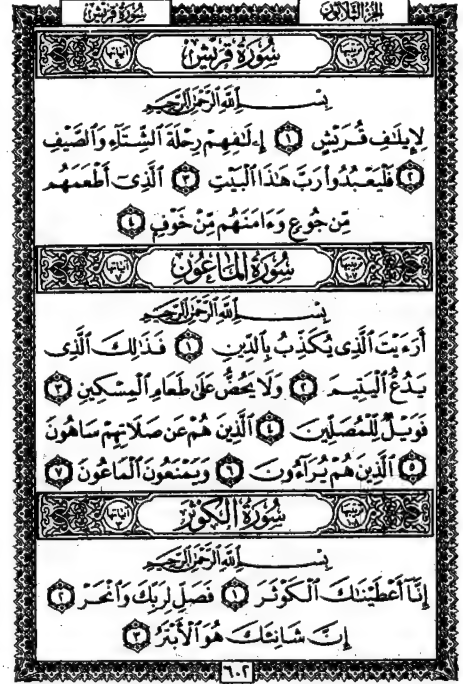 سُورَةُ قُرَيْشٍ الجزء الثلاثون
سُورَةُ قُرَيْشٍ
بِسْمِ ٱللَّهِ ٱلرَّحْمَٰنِ ٱلرَّحِيمِ
لِإِيلَٰفِ قُرَيْشٍ ١ إِۦلَٰفِهِمْ رِحْلَةَ ٱلشِّتَآءِ وَٱلصَّيْفِ
٢ فَلْيَعْبُدُوا۟ رَبَّ هَٰذَا ٱلْبَيْتِ ٣ ٱلَّذِىٓ أَطْعَمَهُم
مِّن جُوعٍ وَءَامَنَهُم مِّنْ خَوْفٍۭ ٤
سُورَةُ المَاعُونِ
بِسْمِ ٱللَّهِ ٱلرَّحْمَٰنِ ٱلرَّحِيمِ
أَرَءَيْتَ ٱلَّذِى يُكَذِّبُ بِٱلدِّينِ ١ فَذَٰلِكَ ٱلَّذِى
يَدُعُّ ٱلْيَتِيمَ ٢ وَلَا يَحُضُّ عَلَىٰ طَعَامِ ٱلْمِسْكِينِ ٣
فَوَيْلٌ لِّلْمُصَلِّينَ ٤ ٱلَّذِينَ هُمْ عَن صَلَاتِهِمْ سَاهُونَ
٥ ٱلَّذِينَ هُمْ يُرَآءُونَ ٦ وَيَمْنَعُونَ ٱلْمَاعُونَ ٧
سُورَةُ الكَوْثَرِ
بِسْمِ ٱللَّهِ ٱلرَّحْمَٰنِ ٱلرَّحِيمِ
إِنَّآ أَعْطَيْنَٰكَ ٱلْكَوْثَرَ ١ فَصَلِّ لِرَبِّكَ وَٱنْحَرْ ٢
إِنَّ شَانِئَكَ هُوَ ٱلْأَبْتَرُ ٣
٦٠٢